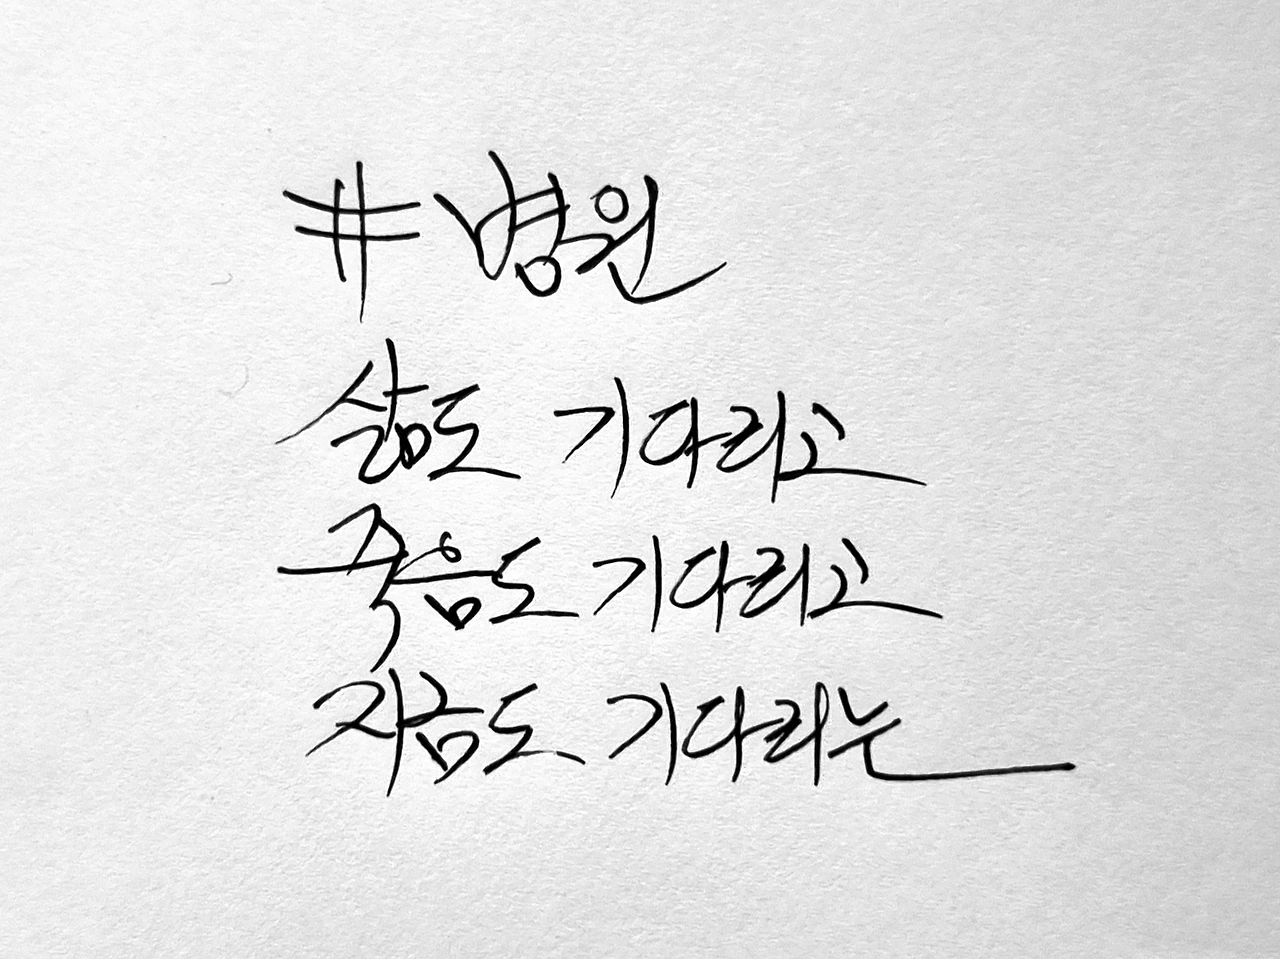 #병원
삶도 기다리고
죽음도 기다리고
지금도 기다리는